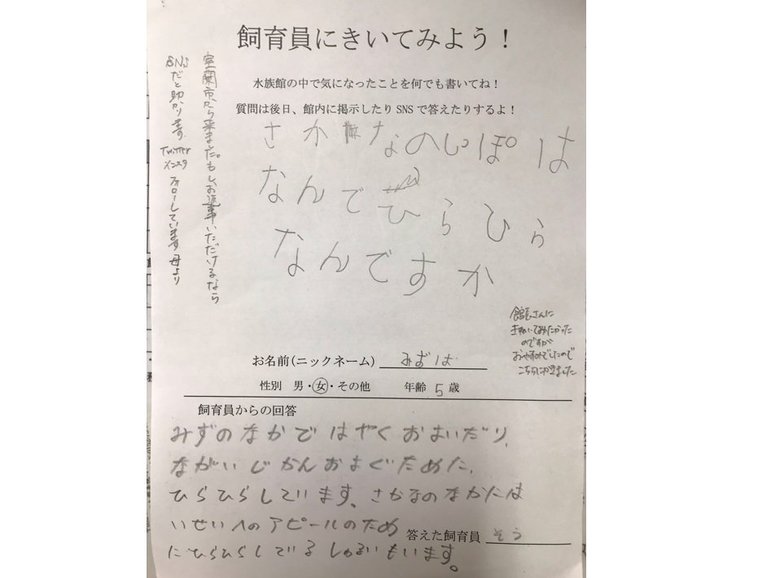 飼育員にきいてみよう！
水族館の中で気になったことを何でも書いてね！
質問は後日、館内に掲示したり SNS で答えたりするよ！
さかなのしっぽは
なんでひらひら
なんですか
室蘭市から来ました。もしお返事いただけるなら
SNSだと助かります
Twitter
インスタ
フォローしています 母より
館長さんに
きいてみたかった
のですが
おやすみでしたので
こちらに
お名前(ニックネーム) みずは
性別 男・女・その他 年齢 5 歳
飼育員からの回答
みずのなかで はやく およいだり、
ながい じかん およぐために、
ひらひらしています。さかなのなかには
いせいへのアピールのため
にひらひらしている しゅるいもいます。
答えた飼育員 そう